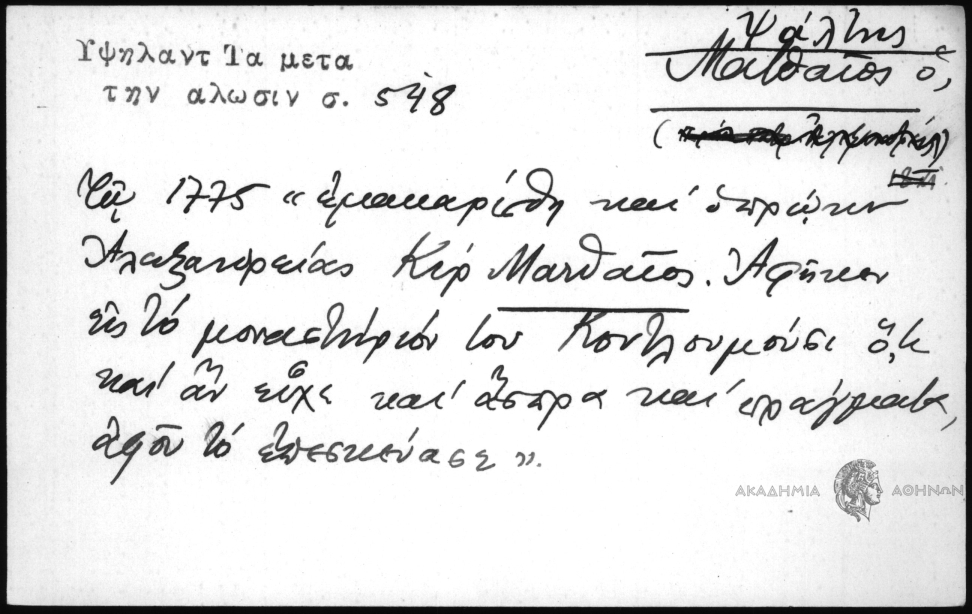 Υψηλαντ Τα μετα
την αλωσιν σ. 548
Ψάλτης
Ματθαῖος ὁ,
Τῷ 1775 « ἐμακαρίσθη καὶ ὁ πρώην
Ἀλεξανδρείας Κὺρ Ματθαῖος. Ἀφῆκεν
εἰς τὸ μοναστήριόν του Κουτλουμούσι ὅ,τι
καὶ ἂν εἶχε καὶ ἄσπρα καὶ πράγματα,
ἀφοῦ τὸ ἐπεσκεύασε ».
ΑΚΑΔΗΜΙΑ ΑΘΗΝΩΝ